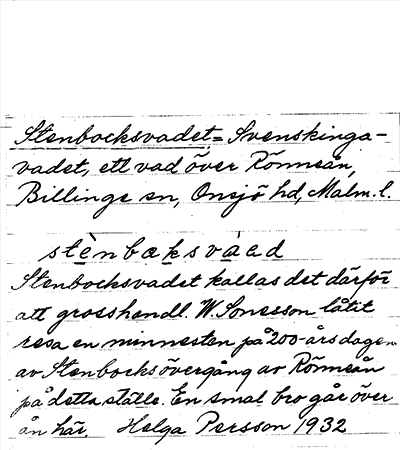 Stenbocksvadet = Svenskinga-
vadet, ett vad över Rönneån,
Billinge sn, Onsjö hd, Malm. l.
stènboksvàad
Stenbocksvadet kallas det därför
att grosshandl. W. Sonesson låtit
resa en minnesten på 200-årsdagen
av Stenbocks övergång av Rönneån
på detta ställe. En smal bro går över
ån här. Helga Persson 1932